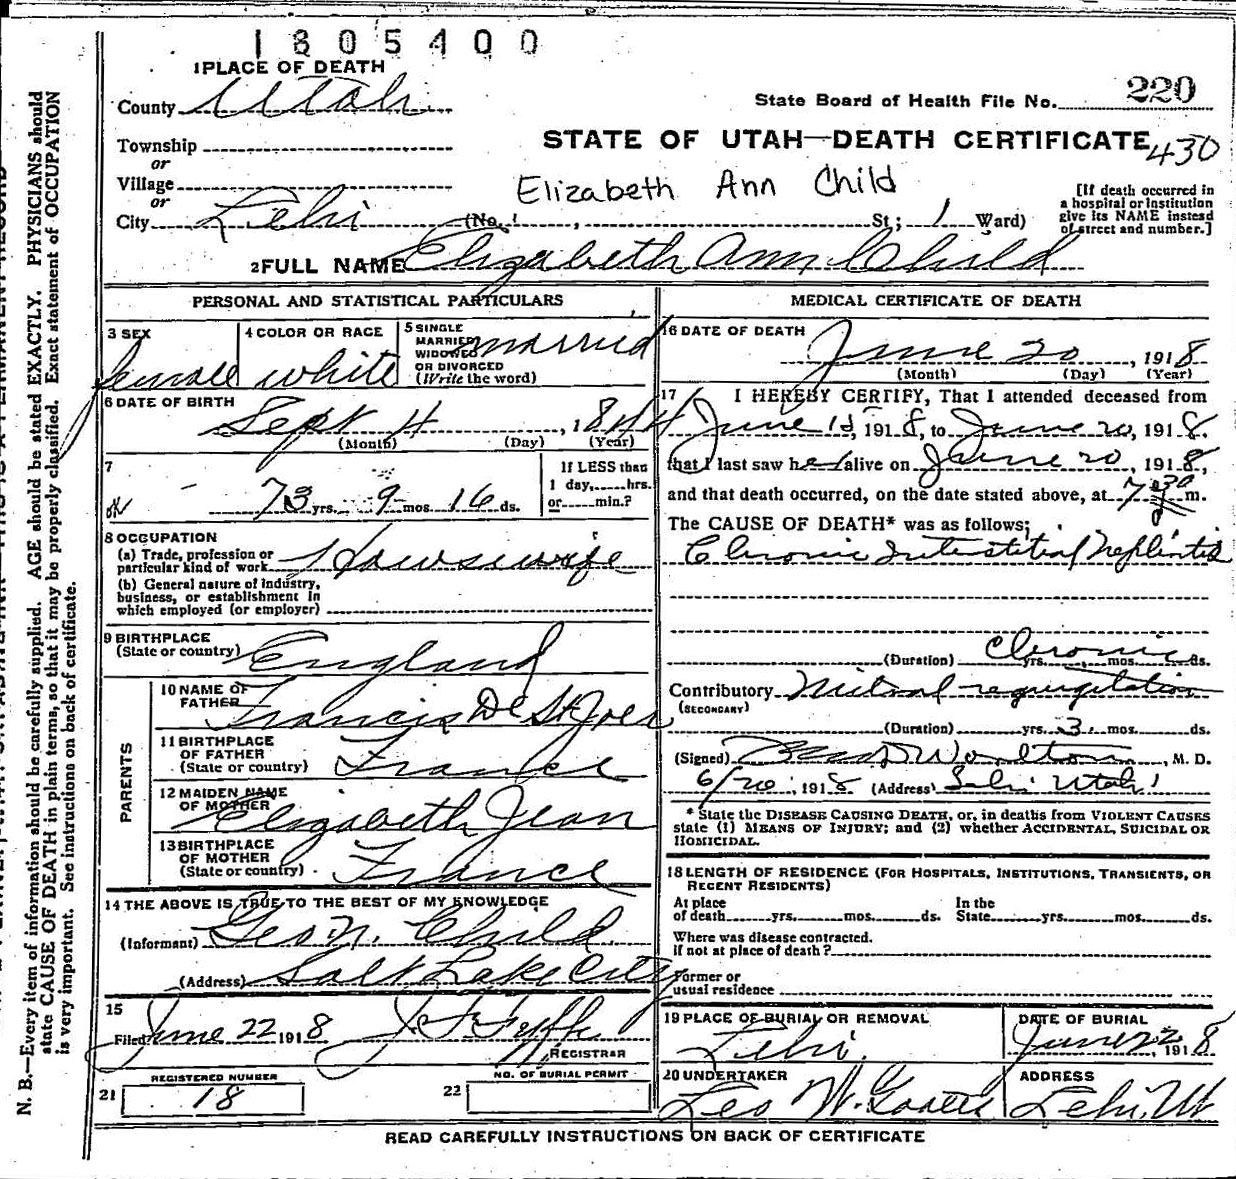 1805400
1 PLACE OF DEATH
County Utah
State Board of Health File No. 220
Township
STATE OF UTAH—DEATH CERTIFICATE 430
or
Village
or
Elizabeth Ann Child
[If death occurred in
a hospital or institution
give its NAME instead
of street and number.]
City Lehi (No. , St; 1 Ward)
2 FULL NAME Elizabeth Ann Child
PERSONAL AND STATISTICAL PARTICULARS
3 SEX female
4 COLOR OR RACE white
5 SINGLE
MARRIED
WIDOWED
OR DIVORCED
(Write the word) married
6 DATE OF BIRTH
Sept 4, 1844
(Month) (Day) (Year)
7
73 yrs. 9 mos. 16 ds.
If LESS than
1 day, hrs.
or min.?
8 OCCUPATION
(a) Trade, profession or
particular kind of work Housewife
(b) General nature of industry,
business, or establishment in
which employed (or employer)
9 BIRTHPLACE
(State or country) England
PARENTS
10 NAME OF
FATHER Francis De St Joer
11 BIRTHPLACE
OF FATHER
(State or country) France
12 MAIDEN NAME
OF MOTHER Elizabeth Jean
13 BIRTHPLACE
OF MOTHER
(State or country) France
14 THE ABOVE IS TRUE TO THE BEST OF MY KNOWLEDGE
(Informant) Geo N. Child.
(Address) Salt Lake City
15
Filed June 22 1918
REGISTRAR
REGISTERED NUMBER
21 18
NO. OF BURIAL PERMIT
22
MEDICAL CERTIFICATE OF DEATH
16 DATE OF DEATH
June 20, 1918
(Month) (Day) (Year)
17 I HEREBY CERTIFY, That I attended deceased from
June 15, 1918, to June 20, 1918.
that I last saw her alive on June 20, 1918,
and that death occurred, on the date stated above, at 7 30 m.
The CAUSE OF DEATH* was as follows;
Chronic Interstitial Nephritis
(Duration) Chronic yrs. mos. ds.
Contributory Mitral regurgitation
(SECONDARY)
(Duration) yrs. 3. mos. ds.
(Signed) Woolton, M. D.
6/20, 1918 (Address) Lehi Utah
* State the DISEASE CAUSING DEATH, or, in deaths from VIOLENT CAUSES
state (1) MEANS OF INJURY; and (2) whether ACCIDENTAL, SUICIDAL OR
HOMICIDAL.
18 LENGTH OF RESIDENCE (FOR HOSPITALS, INSTITUTIONS, TRANSIENTS, OR
RECENT RESIDENTS)
At place
of death yrs. mos. ds.
In the
State yrs. mos. ds.
Where was disease contracted.
if not at place of death?
Former or
usual residence
19 PLACE OF BURIAL OR REMOVAL
Lehi.
DATE OF BURIAL
June 22, 1918
20 UNDERTAKER
Leo W. Goates
ADDRESS
Lehi, Ut
READ CAREFULLY INSTRUCTIONS ON BACK OF CERTIFICATE
N. B.—Every item of information should be carefully supplied. AGE should be stated EXACTLY. PHYSICIANS should
state CAUSE OF DEATH in plain terms, so that it may be properly classified. Exact statement of OCCUPATION
is very important. See instructions on back of certificate.